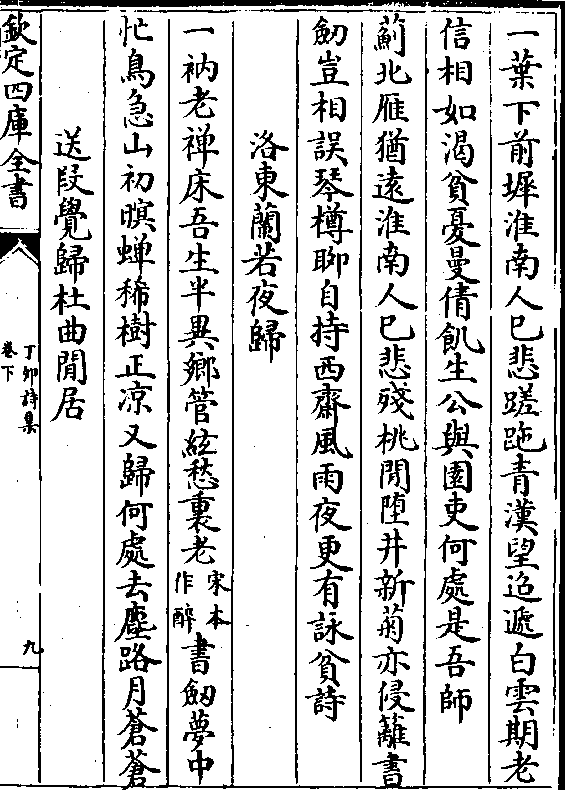 一葉下前墀淮南人已悲蹉跎青漢望迢遞白雲期老
信相如渴貧憂曼倩飢生公與園吏何處是吾師
薊北雁猶遠淮南人已悲殘桃閒堕井新菊亦侵籬書
劒豈相誤琴樽聊自持西齋風雨夜更有詠貧詩
洛東蘭若夜歸
一衲老禅床吾生半異鄉管絃愁裏老宋本作醉書劒夢中
忙鳥急山初暝蟬稀樹正凉又歸何處去塵路月蒼蒼
送段覺歸杜曲閒居
欽定四庫全書
丁卯詩集
卷下
九